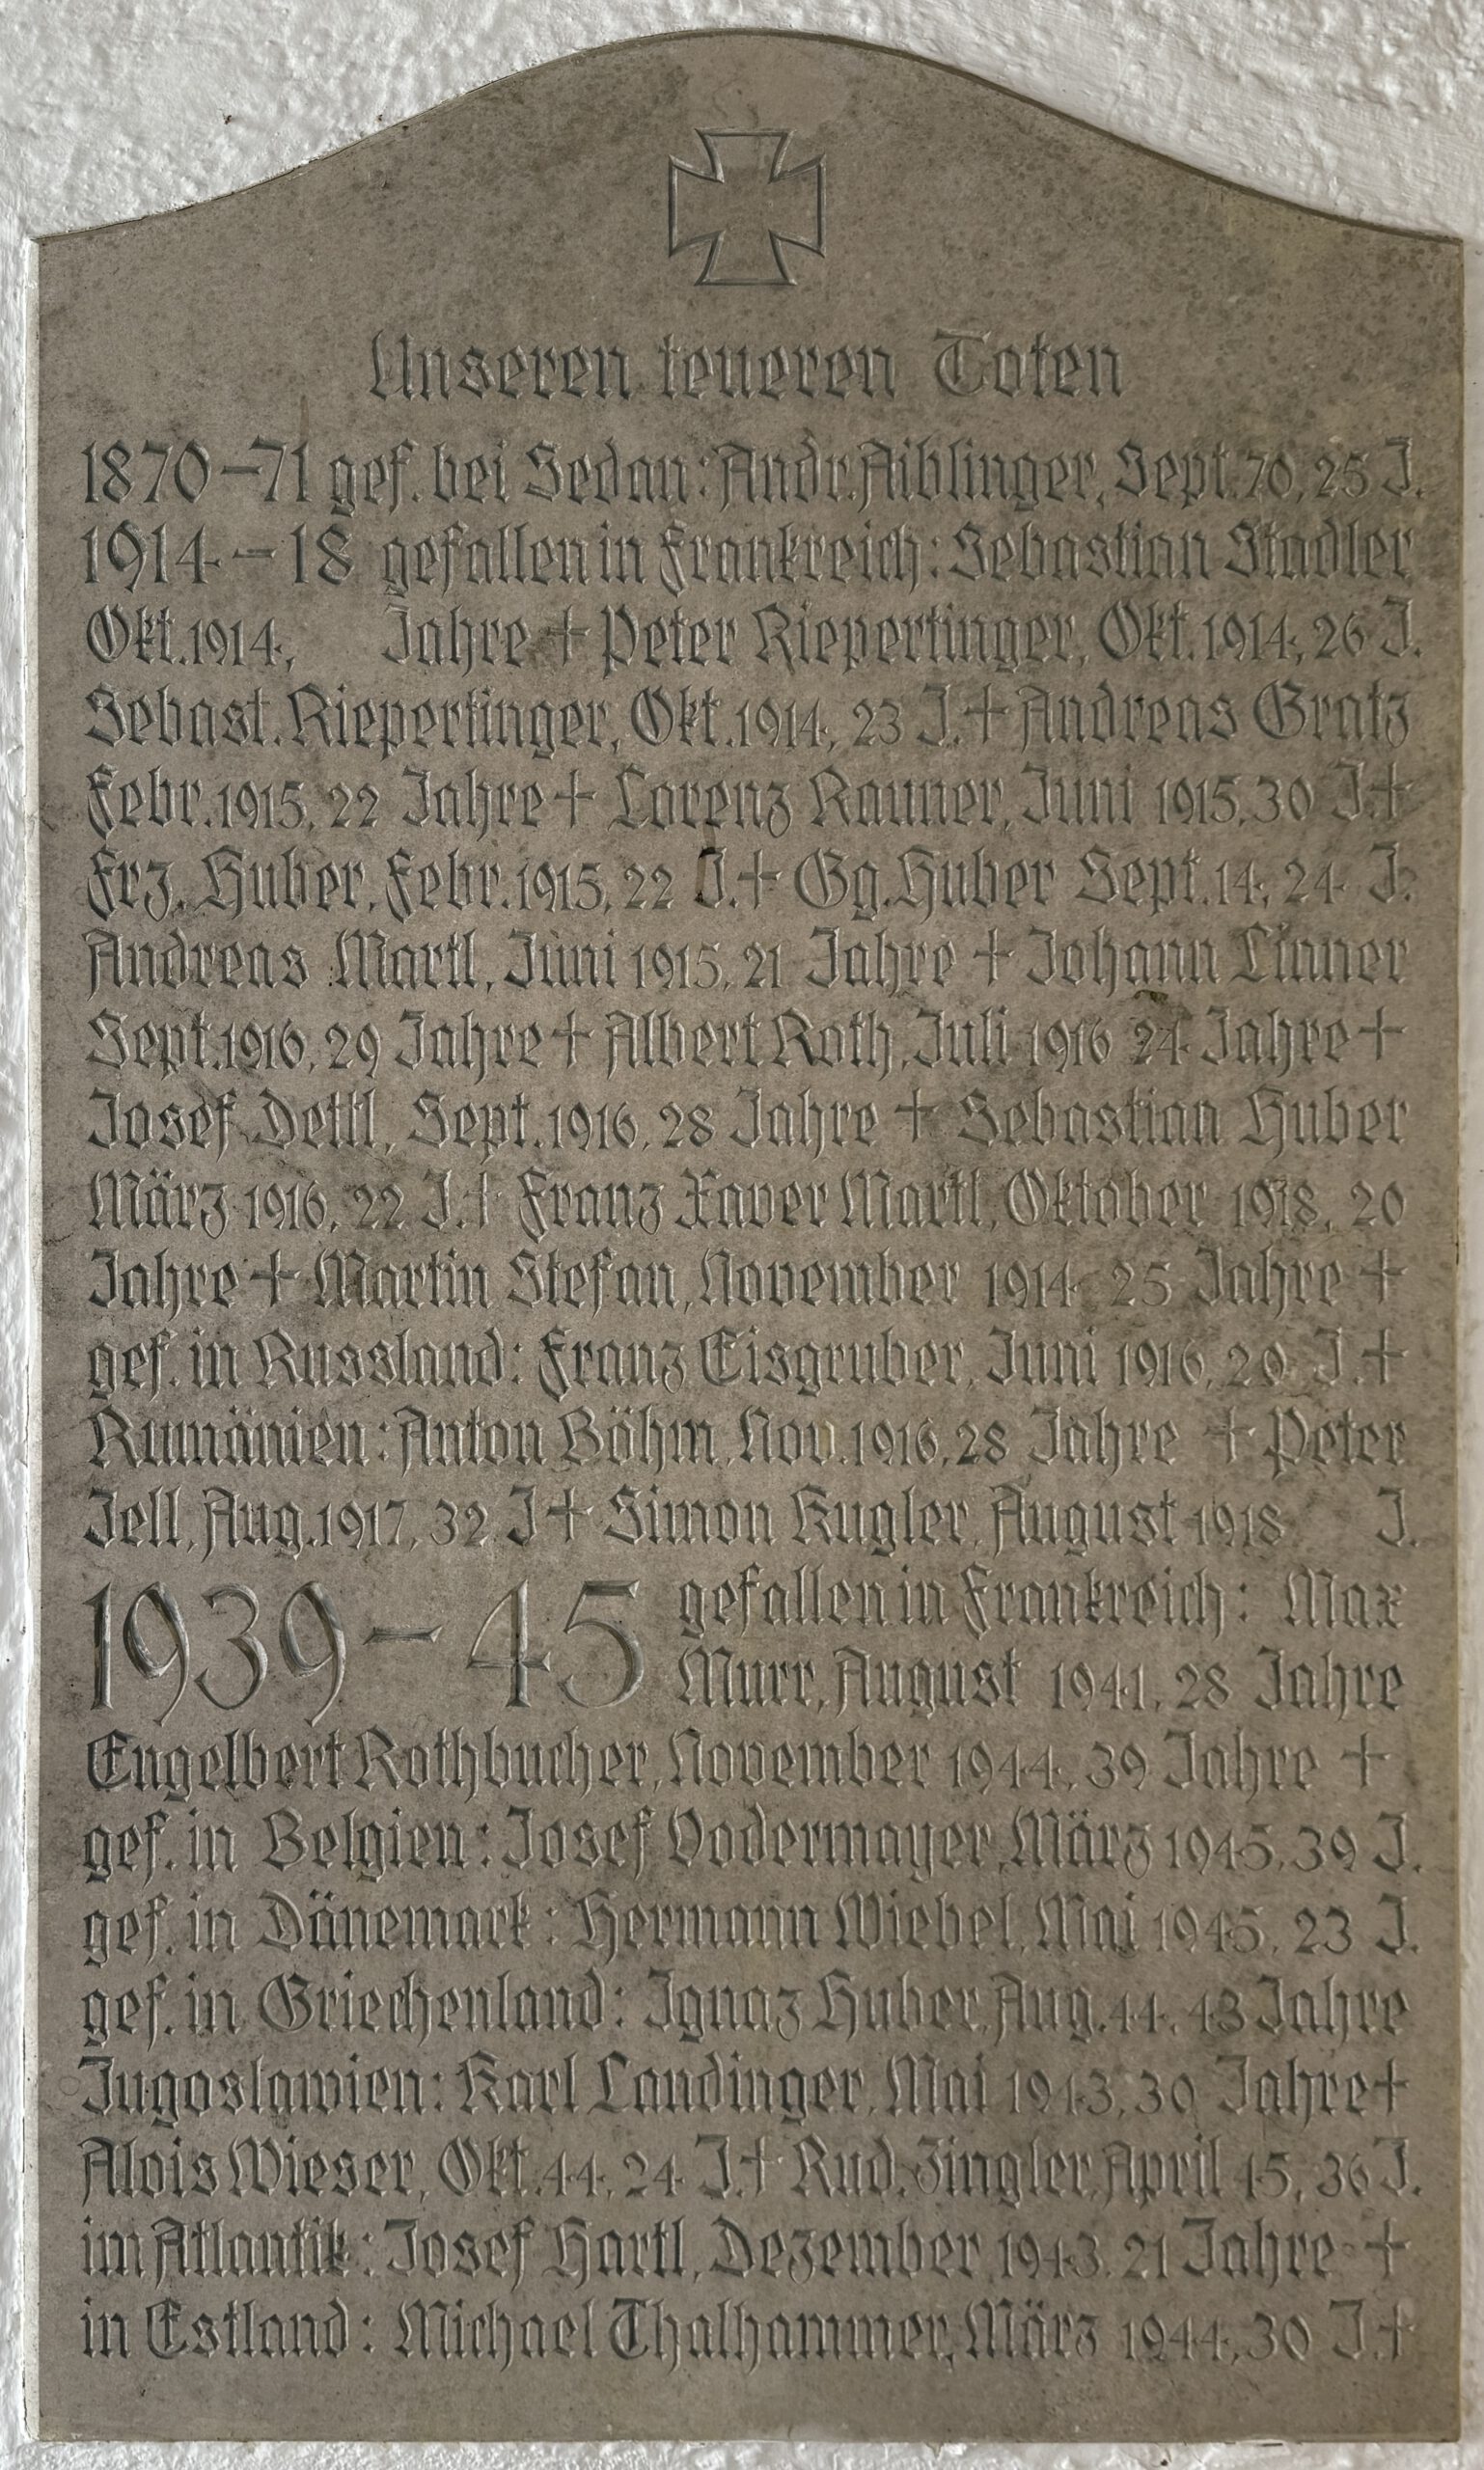 Unseren teueren Toten
1870–71 gef. bei Sedan: Andr. Aiblinger, Sept. 70, 25 J.
1914–18 gefallen in Frankreich: Sebastian Stadler
Okt. 1914, Jahre + Peter Riepertinger, Okt. 1914, 26 J.
Sebast. Riepertinger, Okt. 1914, 23 J. + Andreas Gratz
Febr. 1915, 22 Jahre + Lorenz Rauner, Juni 1915, 30 J. +
Frz. Huber, Febr. 1915, 22 J. + Gg. Huber Sept. 14, 24 J.
Andreas Martl, Juni 1915, 21 Jahre + Johann Linner
Sept. 1916, 29 Jahre + Albert Roth, Juli 1916 24 Jahre +
Josef Dettl, Sept. 1916, 28 Jahre + Sebastian Huber
März 1916, 22 J. + Franz Xaver Martl, Oktober 1918, 20
Jahre + Martin Stefan, November 1914 25 Jahre +
gef. in Russland: Franz Eisgruber, Juni 1916, 20 J. +
Rumänien: Anton Böhm, Nov. 1916, 28 Jahre + Peter
Jell, Aug. 1917, 32 J + Simon Kugler, August 1918 J.
1939–45 gefallen in Frankreich: Max
Murr, August 1941, 28 Jahre
Engelbert Rothbucher, November 1944, 39 Jahre +
gef. in Belgien: Josef Vodermayer, März 1945, 39 J.
gef. in Dänemark: Hermann Wiebel, Mai 1945, 23 J.
gef. in Griechenland: Ignaz Huber, Aug. 44, 43 Jahre
Jugoslawien: Karl Landinger, Mai 1943, 30 Jahre +
Alois Wieser, Okt. 44, 24 J. + Rud. Zingler, April 45, 36 J.
im Atlantik: Josef Hartl, Dezember 1943, 21 Jahre +
in Estland: Michael Thalhammer, März 1944, 30 J. +